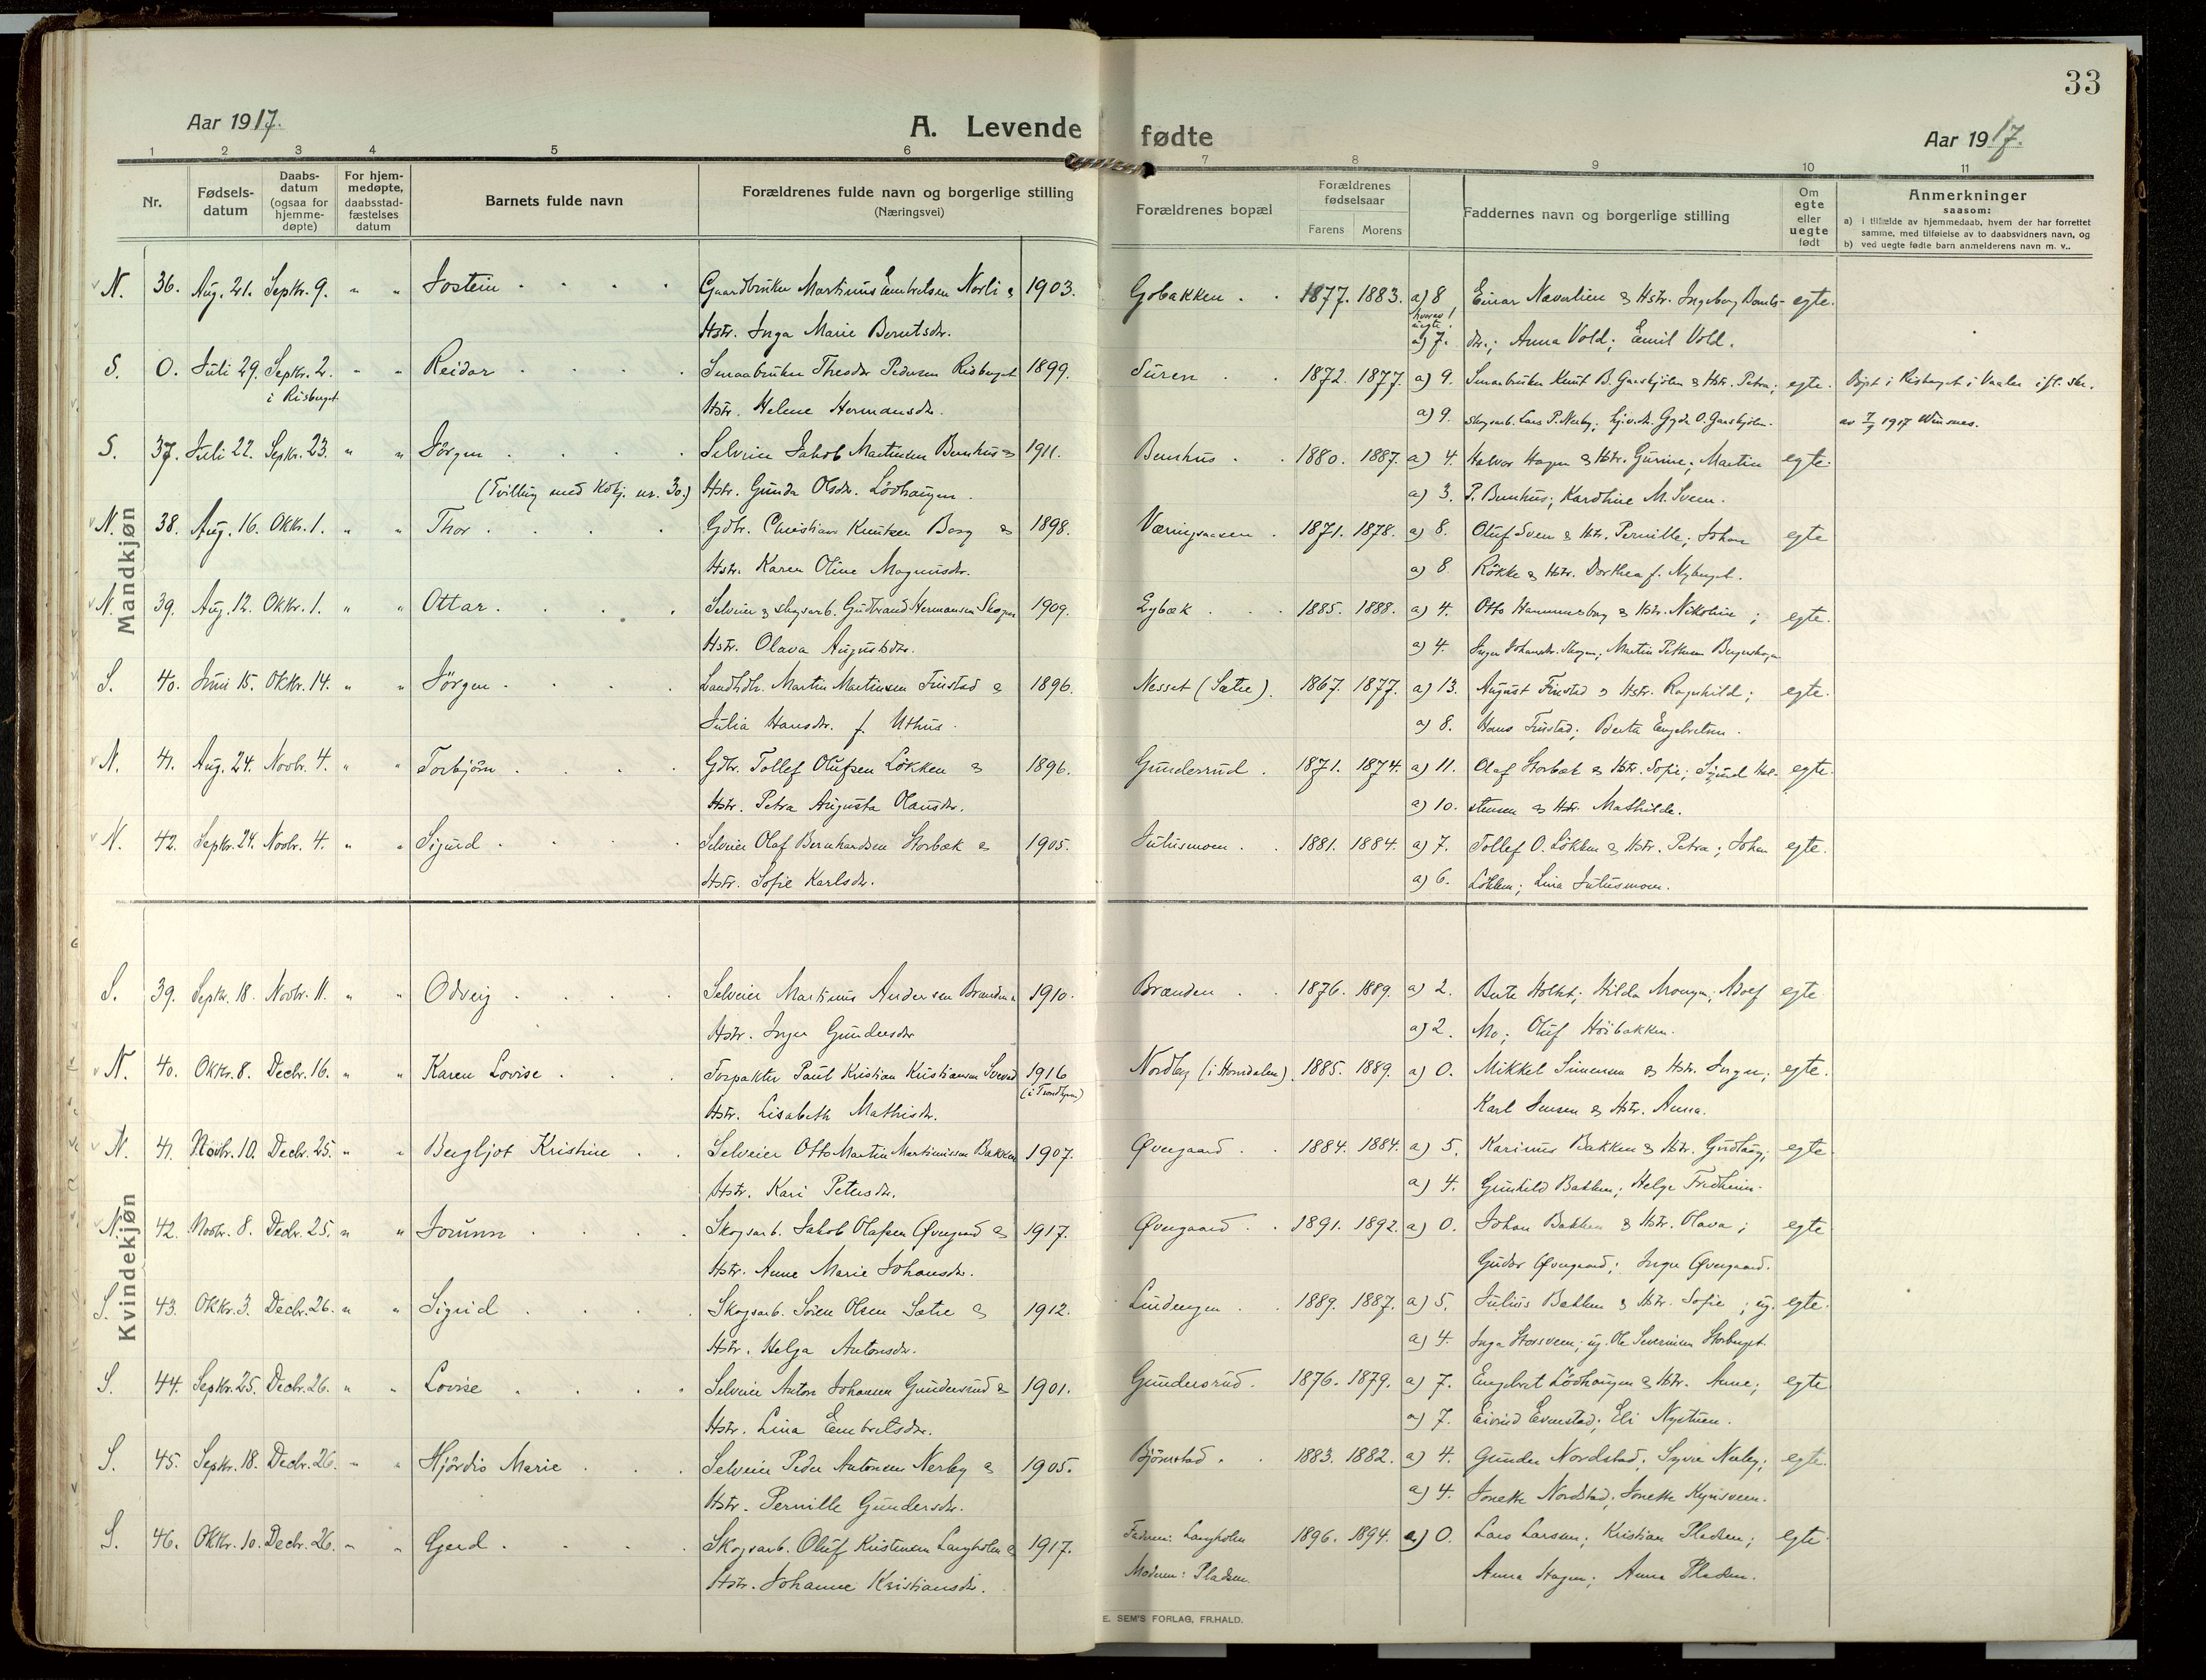 33
Aar 1917.
A. Levende fødte
Aar 1917.
1 2 3 4 5 6 7 8 9 10 11
Nr.
Fødsels-
datum
Daabs-
datum
(ogsaa for
hjemme-
døpte)
For hjem-
medøpte,
daabsstad-
fæstelses
datum
Barnets fulde navn
Forældrenes fulde navn og borgerlige stilling
(Næringsvei)
Forældrenes bopæl
Forældrenes
fødselsaar
Farens Morens
Faddernes navn og borgerlige stilling
Om
egte
eller
uegte
født
Anmerkninger
saasom:
a) i tilfælde av hjemmedaab, hvem der har forrettet
samme, med tilføielse av to daabsvidners navn, og
b) ved uegte fødte barn anmelderens navn m. v..
Mandkjøn
N. 36. Aug. 21. Septr. 9. " " Jostein Gaardbruker Martinus Embretsen Norli & 1903. Gobakken 1877. 1883. a) 8 Einar Næverlien & Hstr. Ingeborg egte.
hvorav 1 uegte.
Hstr. Inga Marie Berntsdr. a) 7. dtr.; Anna Vold; Emil Vold.
S. 0. Juli 29. Septr. 2. " " Reidar Smaabruker Theodor Pedersen Risberget 1899. Suren 1872. 1877. a) 9. Smaabruker Knut B. Gaaskjølen & Hstr. Petra; egte. Døpt i Risberget i Vaaler ifl. skr.
i Risberget
Hstr. Helene Hermansdr. a) 9. Skogsarb. Lars P. Nerby, Gyda O. Gaaskjølen. av 7/9 1917
S. 37. Juli 22. Septr. 23. " " Jörgen Selveier Jakob Martinsen Benhus & 1911. Benhus 1880. 1887. a) 4. Halvor Hagen & Hstr. Gurine; Martin egte.
(Tvilling med Kvkj. nr. 30.) Hstr. Gunda Olsdr. Lödhaugen. a) 3. P. Benhus; Karoline M. Sveen.
N. 38. Aug. 16. Oktr. 1. " " Thor Gdbr. Christian Knutsen Berg & 1898. Væringsaasen 1871. 1878. a) 8. Oluf Sveen & Hstr. Pernille; Johan egte
Hstr. Karen Oline Magnusdr. a) 8. Rökke & Hstr. Dorthea f. Nyberget.
N. 39. Aug. 12. Oktr. 1. " " Ottar Selveier & skogsarb. Gudbrand Hermansen Skogen 1909. Lybæk 1885. 1888. a) 4. Otto Hammersborg & Hstr. Nikoline; egte.
Hstr. Olava Augustsdtr. a) 4. Inger Johansdr. Skogen; Martin
S. 40. Juni 15. Oktr. 14. " " Jörgen Landhdlr. Martin Martinsen Finstad & 1896. Nesset (Sætre). 1867. 1877. a) 13. August Finstad & Hstr. Ragnhild; egte.
Julia Hansdr. f. Uthus. a) 8. Hans Finstad; Berta Engebretsen.
N. 41. Aug. 24. Novbr. 4. " " Torbjörn Gdbr. Tollef Olufsen Løkken & 1896. Gundersrud 1871. 1874. a) 11. Olaf Storbæk & Hstr. Sofie; Sigurd Hal- egte.
Hstr. Petra Augusta Olausdr. a) 10. stensen & Hstr. Mathilde.
N. 42. Septr. 24. Novbr. 4. " " Sigurd Selveier Olaf Bernhardsen Storbæk & 1905. Julusmoen 1881. 1884. a) 7. Tollef O. Løkken & Hstr. Petra; Johan egte.
Hstr. Sofie Karlsdr. a) 6. Løkken; Lina Julusmoen.
Kvindekjøn
S. 39. Septr. 18. Novbr. 11. " " Odveig Selveier Martinus Andersen Brænden & 1910. Brænden 1876. 1889. a) 2. Berte Holtet; Hilda Moengen; Adolf egte
Hstr. Inger Gundersdr a) 2. Mo; Oluf Høibakken.
N. 40. Oktr. 8. Decbr. 16. " " Karen Lovise Forpakter Paul Kristian Kristiansen 1916 Nordby (i Hovdalen). 1885. 1889. a) 0. Mikkel Simensen & Hstr. Inger; egte.
(i Trondhjem)
Hstr. Lisabeth Mathisdr. Karl Jensen & Hstr. Anna.
N. 41. Novbr. 10. Decbr. 25. " " Bergljot Kristine Selveier Otto Martin Martinussen Bakken 1907. Øvergaard 1884. 1884. a) 5. Karinus Bakken & Hstr. Gudlaug; egte
Hstr. Kari Petersdr. a) 4. Gunhild Bakken; Helge Fredheim.
N. 42. Novbr. 8. Decbr. 25. " " Jorunn Skogsarb. Jakob Olafsen Øvergaard & 1917. Øvergaard 1891. 1892. a) 0. Johan Bakken & Hstr. Olava; egte
Hstr. Anne Marie Johansdr. Gudor Øvergaard; Inger Øvergaard.
S. 43. Oktr. 3. Decbr. 26. " " Sigrid Skogsarb. Sören Olsen Sætre & 1912. Lindengen 1889. 1887. a) 5. Julius Bakken & Hstr. Sofie; ug. egte.
Hstr. Helga Antonsdr. a) 4. Inga Storsveen; ug. Ole Severinsen Storberget.
S. 44. Septr. 25. Decbr. 26. " " Lovise Selveier Anton Johansen Gundersrud & 1901. Gundersrud. 1876. 1879. a) 7. Engebret Lödhaugen & Hstr. Anne; egte
Hstr. Lina Embretsdr. a) 7. Eivind Evenstad; Eli Nystuen.
S. 45. Septr. 18. Decbr. 26. " " Hjördis Marie Selveier Peder Antonsen Nerby & 1905. Björnstad. 1883. 1882. a) 4. Gunder Nordstad; Syver Nerby; egte.
Hstr. Pernille Gundersdr. a) 4. Jonette Nordstad; Jonette Kynsveen.
S. 46. Oktr. 10. Decbr. 26. " " Gerd Skogsarb. Oluf Kristensen Langholen & 1917. Faderen: Langholen 1896. 1894. a) 0. Lars Larsen; Kristian Pladsen; egte
Hstr. Johanne Kristiansdr. Moderen: Pladsen. Anna Hagen; Anna Pladsen.
E. SEM'S FORLAG, FR.HALD.